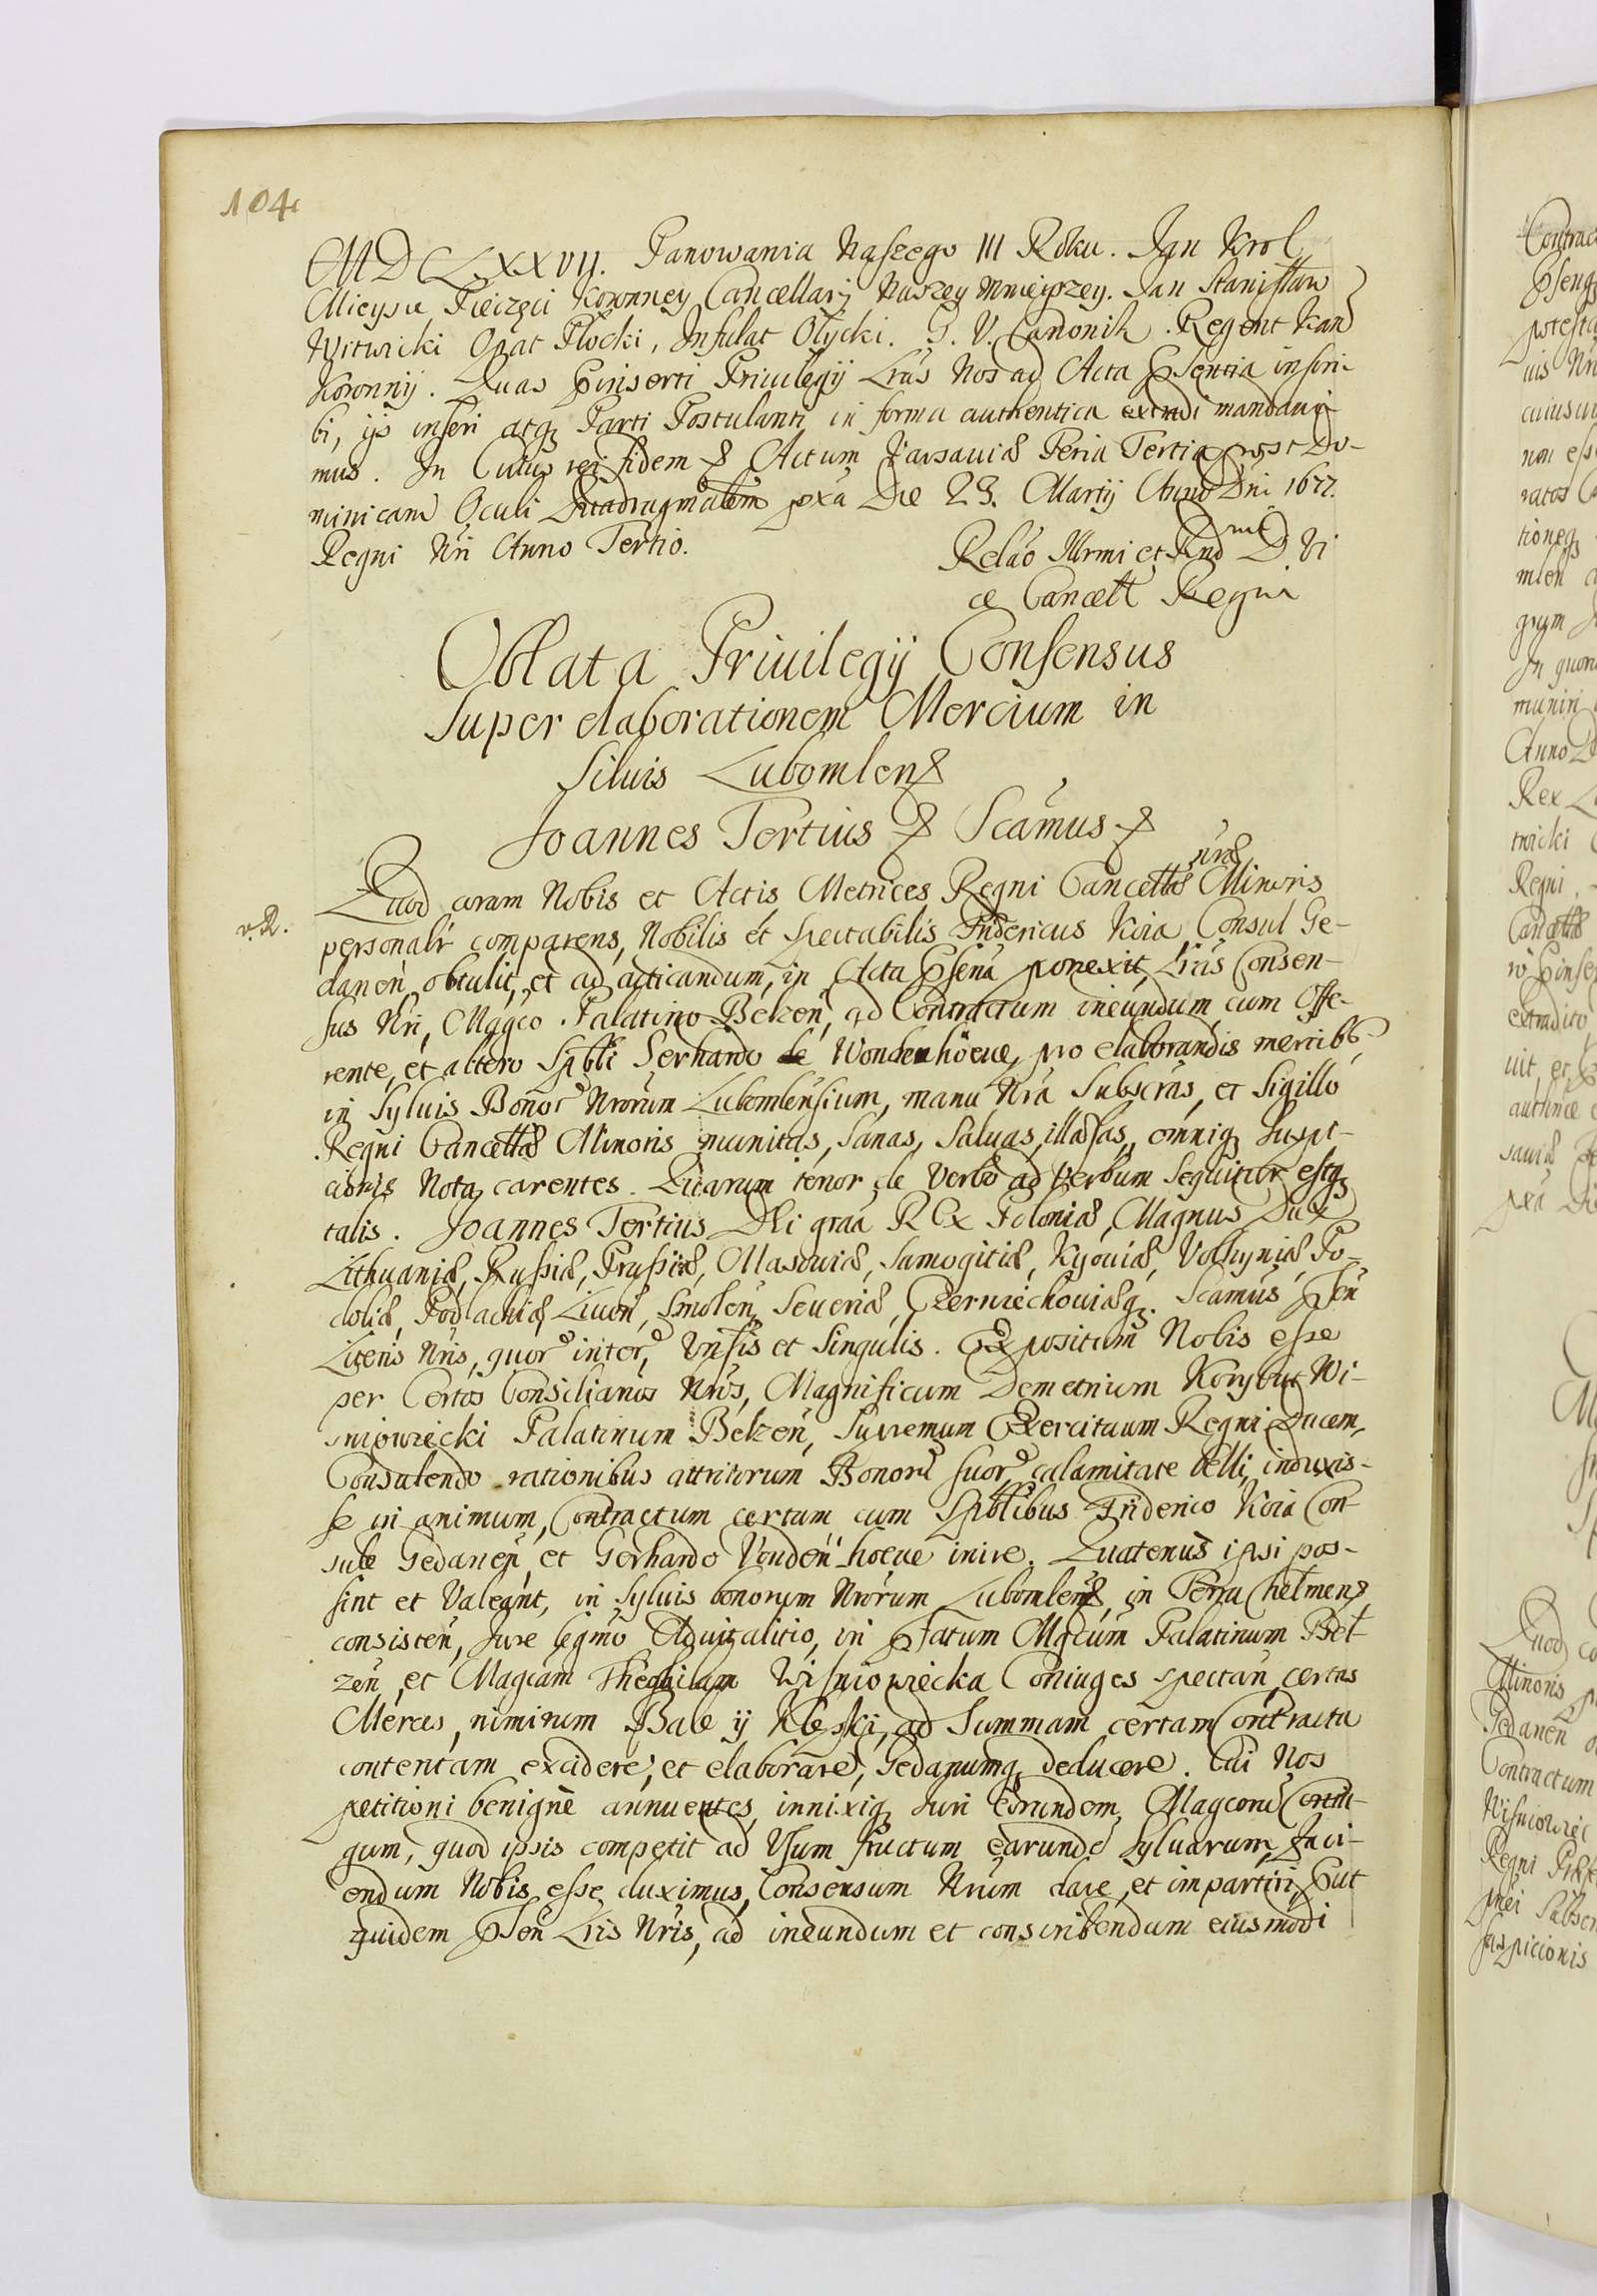 104
MDCLXXVII. Panowania Naszego III Roku. Jan Krol
Mieysce Pieczęci Koronney Cancellarij Naszey Mnieyszey. Jan Stanisław
Witwicki Opat Płocki, Infulat Ołycki. G. V. Canonik. Regent Kan
Koronnij. Quas Pinserti Priuilegij Lrās Nos ad Acta Psentia inscri-
bi, ijs inseri atq Parti Postulanti in forma authentica extradi mandaui-
mus. In Cuius rei fidem & Actum Varsauiæ Feria Tertia post Do-
minicam Oculi Quadragmalem pxā Die 23. Martij Anno Dni 1677.
Regni Nri Anno Tertio.
Relāo Illrmi et Rnd mi D. Vi
ce Cancell Regni
Oblata Priuilegij Consensus
super elaborationem Mercium in
Siluis Lubomlens
Joannes Tertius & Scāmus &
v. R.
Quod coram Nobis et Actis Metrices Regni Cancellæ nræ Minoris
personalr comparens, Nobilis et Spectabilis Fridericus Koia Consul Ge-
danen, obtulit, et ad acticandum, in Acta Psenā porrexit, Lrās Consen-
sus Nri, Magco Palatino Belzen, ad Contractum ineundum cum Offe-
rente, et altero Spbli Gerhardo de Wondenhöeue, pro elaborandis mercibs
in Syluis Bonor Nrorum Lubomlensium, manu Nra Subscras, et Sigillo
Regni Cancellæ Minoris munitas, Sanas, Saluas, illæsas, omniq suspi-
cionis Nota carentes. Quarum tenor de Verbo ad Verbum Sequitur estq
talis. Joannes Tertius Dei graa Rex Poloniæ, Magnus Dux
Lithuaniæ, Russiæ, Prussiæ, Masouiæ, Samogitiæ, Kyouiæ, Volhyniæ, Po-
doliæ, Podlachiæ, Liuon, Smolen, Seueriæ, Czerniechouiæq. Scamus Psen
Literis Nris, quor inter, Vnsis et Singulis. Expositum Nobis esse
per Certos Consiliarios Nros, Magnificum Demetrium Korybut Wi-
sniowiecki Palatinum Belzen, Supremum Exercituum Regni Ducem,
Consulendo rationibus attritorum Bonor suor, calamitate belli, induxis-
se in animum, Contractum certum cum Spblibus Friderico Koia Con-
sule Gedanen, et Gerhardo Vonden-höeue inire. Quatenus ipsi pos-
sint et Valeant, in Syluis bonorum Nrorum Lubomlens, in Terra Chelmens,
consisten, Jure legmo Aduitalitio, in Pfatum Mgcum Palatinum Bel-
zen, et Magcam Theophilam Wisniowiecka Coniuges spectan, certas
Merces, nimirum Bale ij Klepki, ad Summam certam Contractu
contentam excidere, et elaborare, Gedanumq deducere. Cui Nos
petitioni benignè annuentes, innixiq Juri Eorundem Magcor Coniu-
gum, quod ipsis competit ad Vsum fructum earunde Syluarum, Faci-
endum Nobis esse duximus, Consensum Nrum dare, et impartiri, Put
quidem Psen Lris Nris, ad ineundum et conscribendum eiusmodi